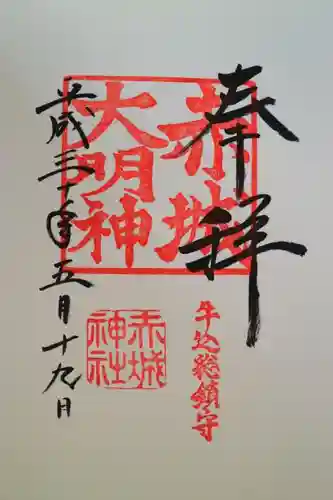 奉拝
赤城
大明神
牛込総鎮守
赤城
神社
歳三十年五月十九日